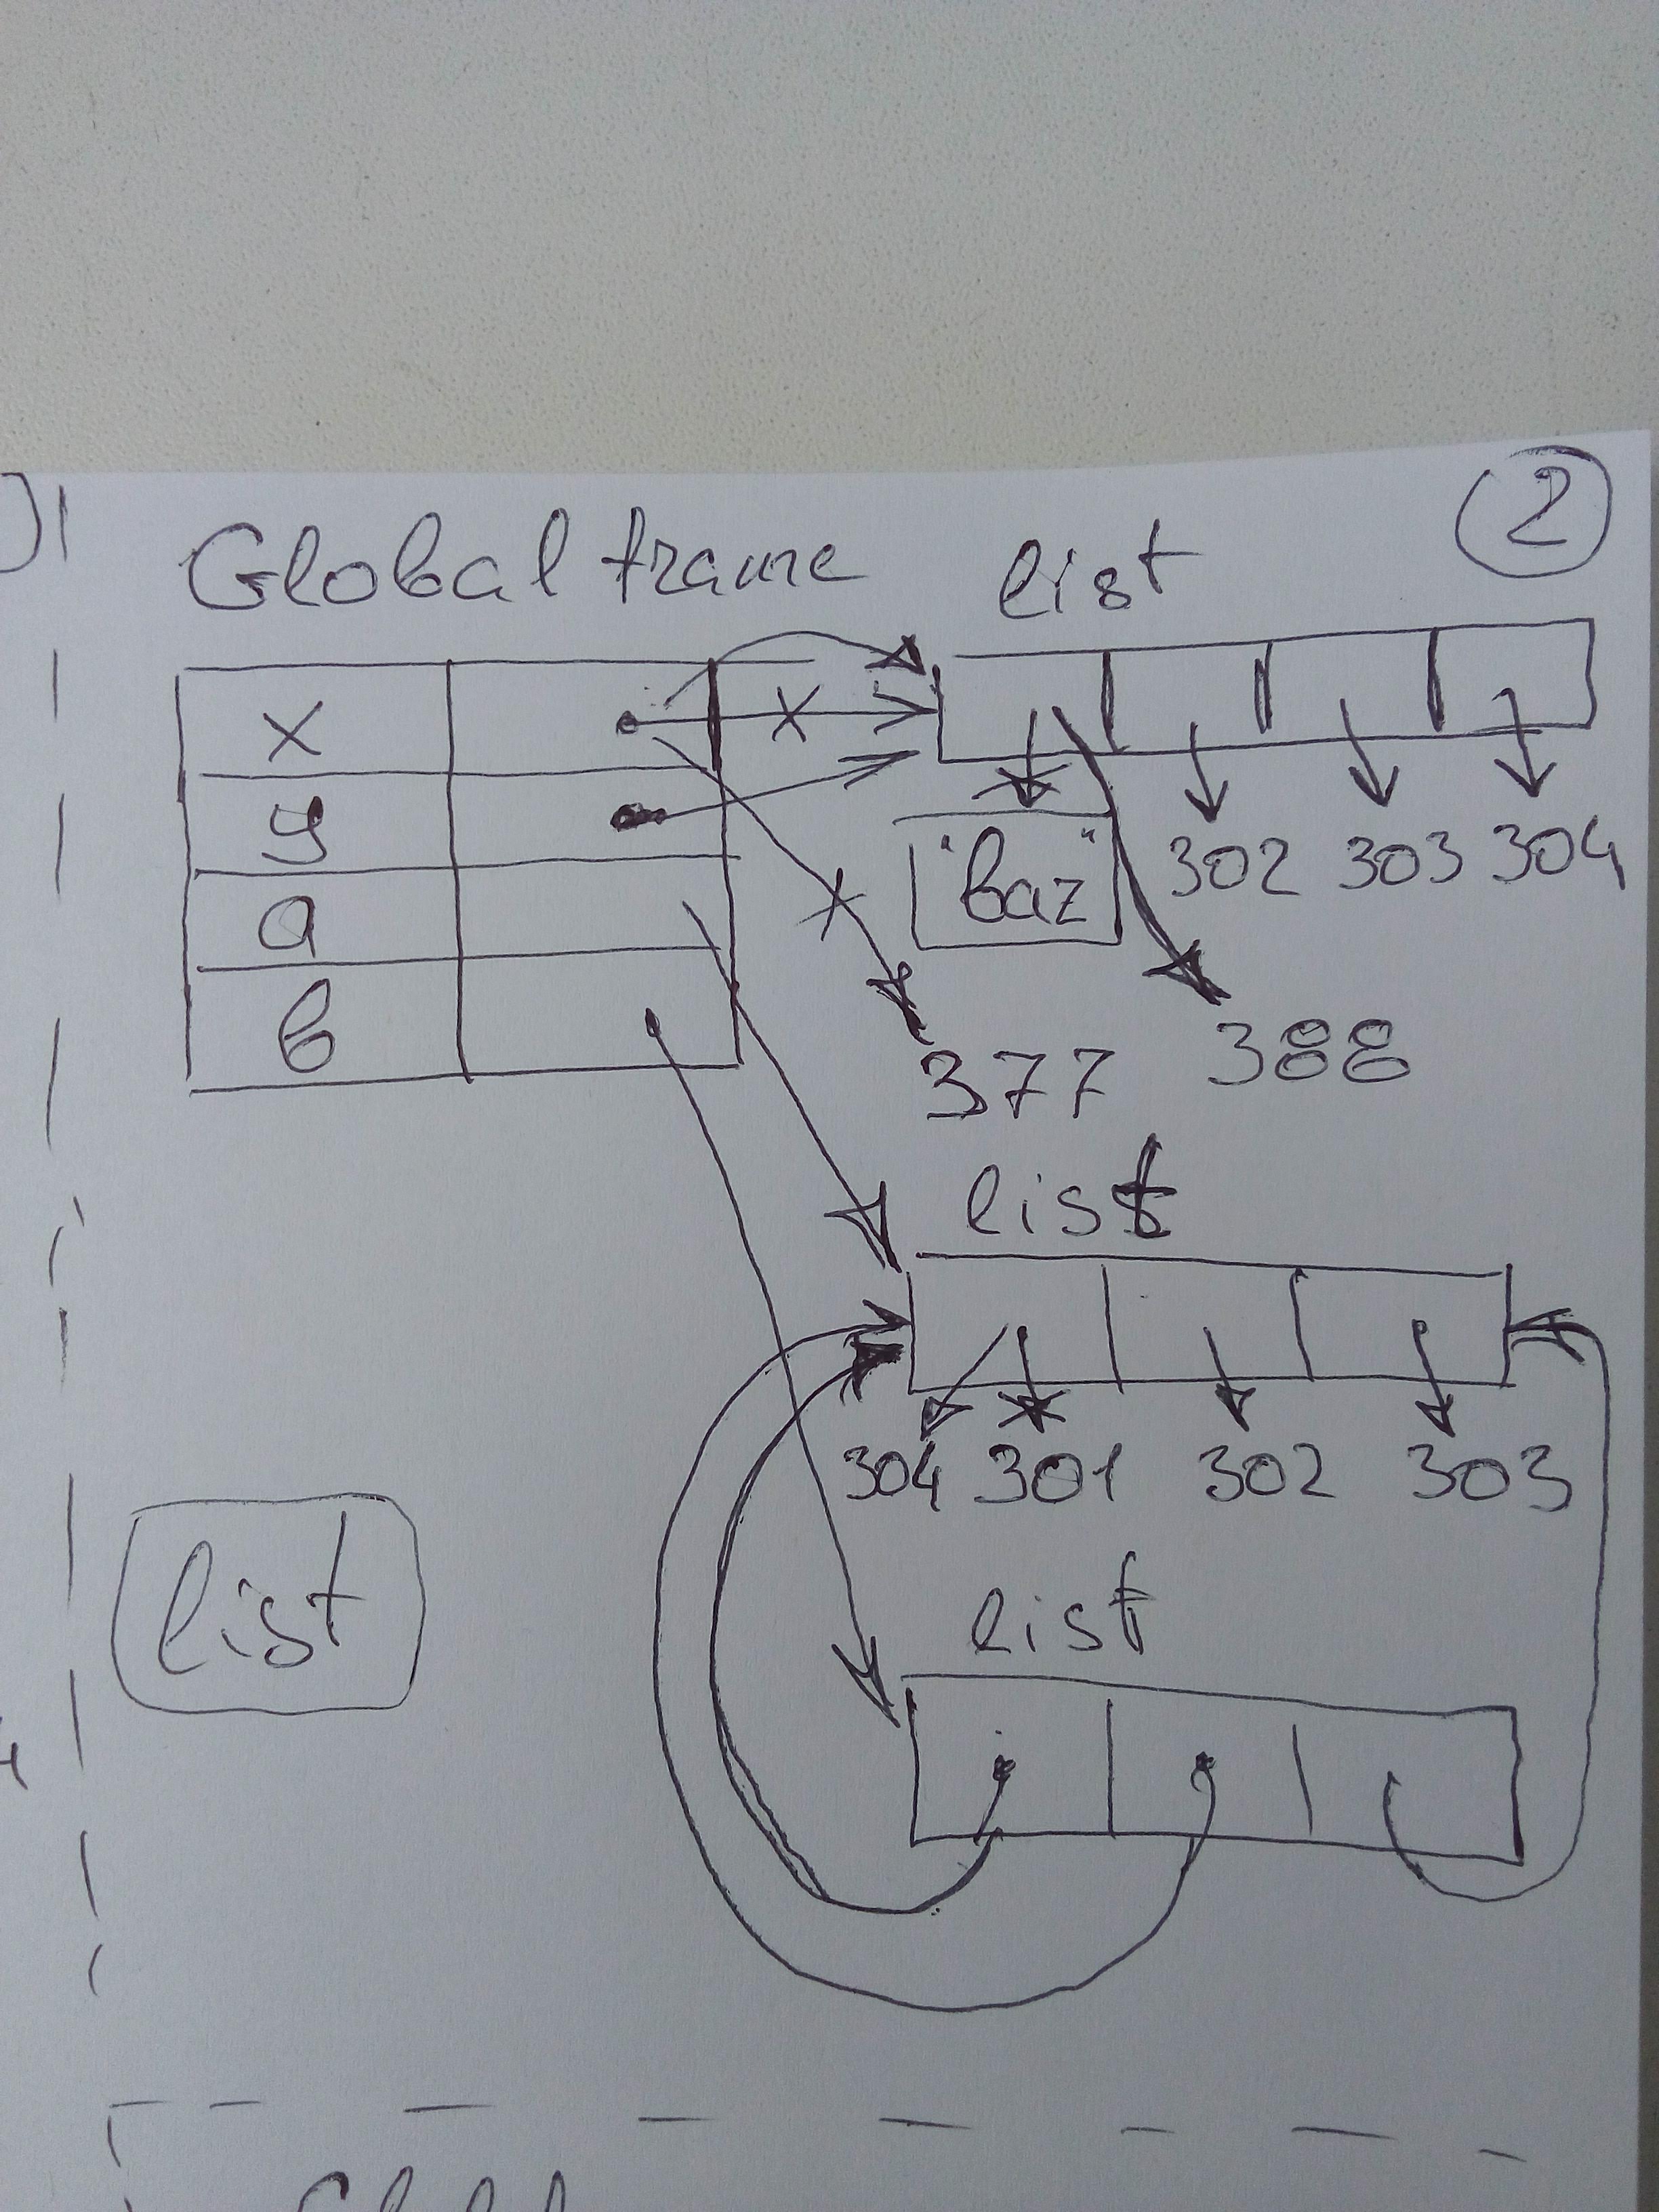 Global frame list 2
x
y
a
b
"baz" 302 303 304
377 388
list
304 301 302 303
list
list